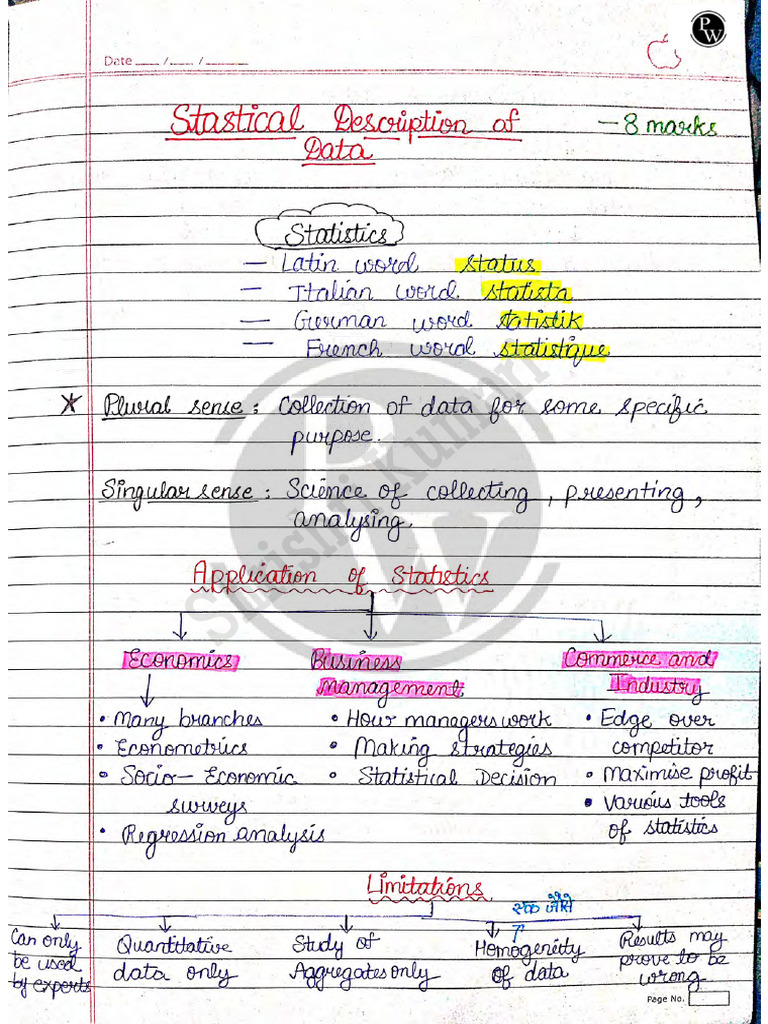 PW
Date ___ / ___ / _____
Stastical Description of — 8 marks
Data
Statistics
— Latin word status
— Italian word statista
— German word statistik
— French word statistique
* Plural sense : Collection of data for some specific
purpose.
Singular sense : Science of collecting , presenting ,
analysing.
Application of Statistics
Economics
Business
Management
Commerce and
Industry
• Many branches
• Econometrics
• Socio- Economic
surveys
• Regression analysis
• How managers work
• Making strategies
• Statistical Decision
• Edge over
competitor
• Maximise profit
• Various tools
of statistics
Limitations
एक जैसे
Can only
be used
by experts
Quantitative
data only
Study of
Aggregates only
Homogenity
of data
Results may
prove to be
wrong
Page No.